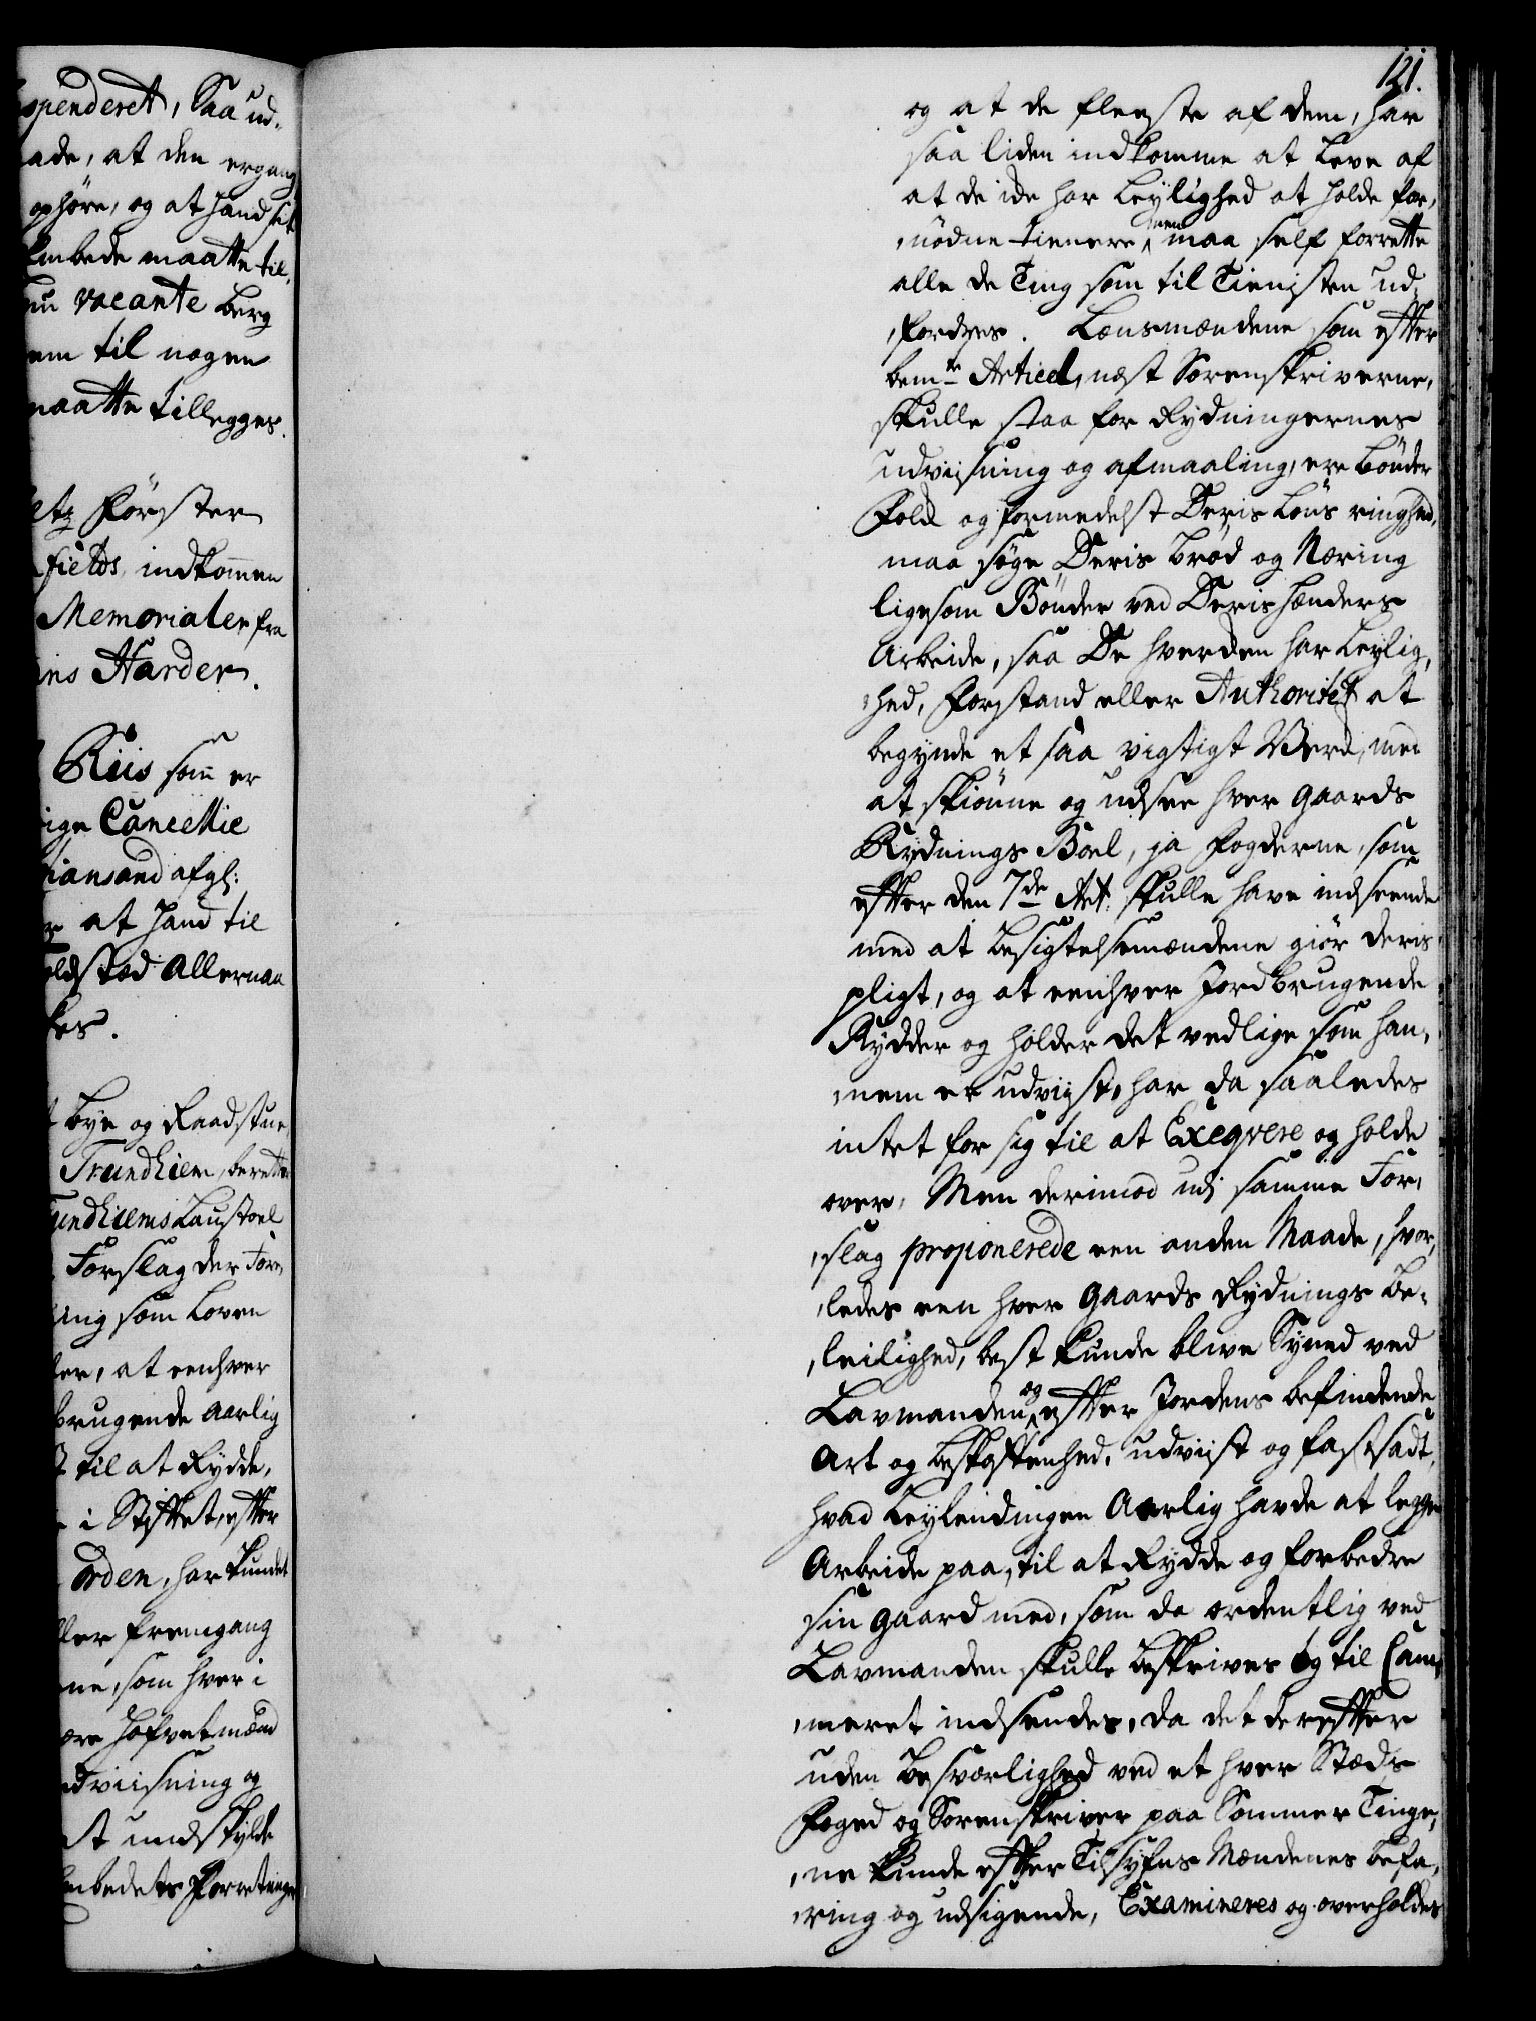 spenderet, Saa ud¬
ade, at den ergang
ophöre, og at hand sit
Embede maatte til¬
vacante berg
em til nogen
maatte tillegges.
Förster
fields indkommen
Memorialer fra
ins Harder.
Riis som er
ige Cancellie
iansand afgl:
at hand til
oldsted Allernaa
kes.
bye og Raadstue
Trundhiem, berette
undhiems Laugstoel
Forslag der for¬
ing som Loven
ler, at eenhver
brugende Aarlig
til at Rydde,
i Stiftet, efter
Orden, har kundet
ller fremgang
ne, som hver i
ære hofvetmænd
udviisning og
st undskylde
mbedets forretninger
121.
og at de fleeste af dem, har
saa liden indkomme at leve af
at de icke har leylighed at holde for¬
nödne tienere, men maa self forrette
alle de Ting som til Tienisten ud¬
fordres. Lensmændene som efter
bemte Articel, næst Sorenskriverne,
skulle staa for Rydningernes
udviisning og afmaaling, ere bönder
Folck og formedelst Deris Löns ringhed,
maa söge Deris bröd og Næring
ligesom Bönder ved Deris hænders
Arbeide, saa De hverken har leylig¬
hed, forstand eller Authoritet at
begynde et saa vigtigt Werck, med
at skiönne og udsee hver gaards
Rydnings Boel, ja fogderne, som
efter den 7de Art: skulle have indseende
med at besigtelsemændene giör deris
pligt, og at eenhver Jordbrugende
Rydder og holder det vedlige som han¬
nem er udviist, har da saaledes
intet for sig til at Exeqvere og holde
over, Men derimod udi samme For¬
slag proponerede een anden Maade, hvor¬
ledes een hver gaards Rydnings be¬
leilighed, best kunde blive Syned ved
Lavmanden og efter Jordens befindende
Art og beskaffenhed, udviist og fastsadt,
hvad Leylendingen Aarlig havde at legge
Arbeide paa, til at Rydde og forbedre
sin gaard med, som da ordentlig ved
Lavmanden skulle beskrives og til Cam¬
meret indsendes, da det derefter
uden besværlighed ved et hver Steds
foged og Sorenskriver paa Sommer Tinge¬
ne kunde efter Tilsyfns Mændenes befa¬
ring og udsigende, Examineres og overholdes